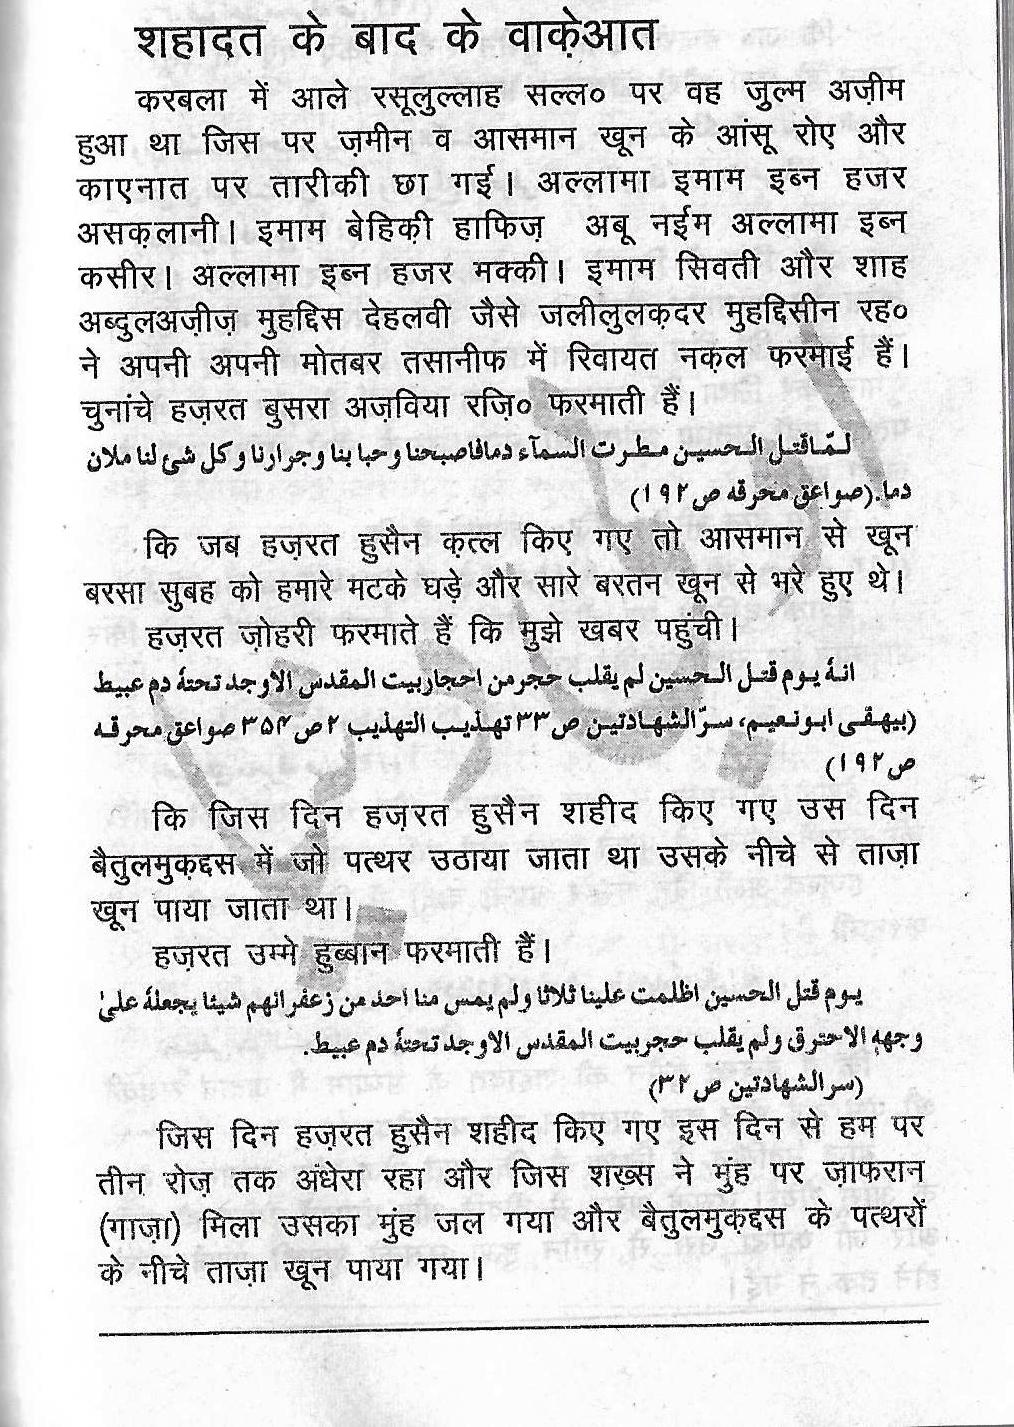 शहादत के बाद के वाक़ेआत
करबला में आले रसूलुल्लाह सल्ल० पर वह जुल्म अज़ीम
हुआ था जिस पर ज़मीन व आसमान खून के आंसू रोए और
काएनात पर तारीकी छा गई। अल्लामा इमाम इब्न हजर
असक़लानी। इमाम बेहिक़ी हाफिज़ अबू नईम अल्लामा इब्न
कसीर। अल्लामा इब्न हजर मक्की। इमाम सिवती और शाह
अब्दुलअज़ीज़ मुहद्दिस देहलवी जैसे जलीलुलक़दर मुहद्दिसीन रह०
ने अपनी अपनी मोतबर तसानीफ में रिवायत नक़ल फरमाई हैं।
चुनांचे हज़रत बुसरा अज़विया रज़ि० फरमाती हैं।
لمّا قتل الحسين مطرت السمآء دما فاصبحنا وحبا بنا وجرارنا وكل شئ لنا ملان
دما. (صواعق محرقه ص ۱۹۲)
कि जब हज़रत हुसैन क़त्ल किए गए तो आसमान से खून
बरसा सुबह को हमारे मटके घड़े और सारे बरतन खून से भरे हुए थे।
हज़रत ज़ोहरी फरमाते हैं कि मुझे खबर पहुंची।
انهٔ يوم قتل الحسين لم يقلب حجر من احجار بيت المقدس الا وجد تحتهٔ دم عبيط
(بيهقى ابو نعيم، سرّ الشهادتين ص ۳۳ تهذيب التهذيب ۲ ص ۳۵۴ صواعق محرقه
ص ۱۹۲)
कि जिस दिन हज़रत हुसैन शहीद किए गए उस दिन
बैतुलमुक़द्दस में जो पत्थर उठाया जाता था उसके नीचे से ताज़ा
खून पाया जाता था।
हज़रत उम्मे हुब्बान फरमाती हैं।
يوم قتل الحسين اظلمت علينا ثلاثا ولم يمس منا احد من زعفرانهم شيئا يجعلهٔ علىٰ
وجههٖ الا حترق ولم يقلب حجر بيت المقدس الا وجد تحتهٔ دم عبيط.
(سر الشهادتين ص ۳۲)
जिस दिन हज़रत हुसैन शहीद किए गए इस दिन से हम पर
तीन रोज़ तक अंधेरा रहा और जिस शख़्स ने मुंह पर ज़ाफरान
(गाज़ा) मिला उसका मुंह जल गया और बैतुलमुक़द्दस के पत्थरों
के नीचे ताज़ा खून पाया गया।